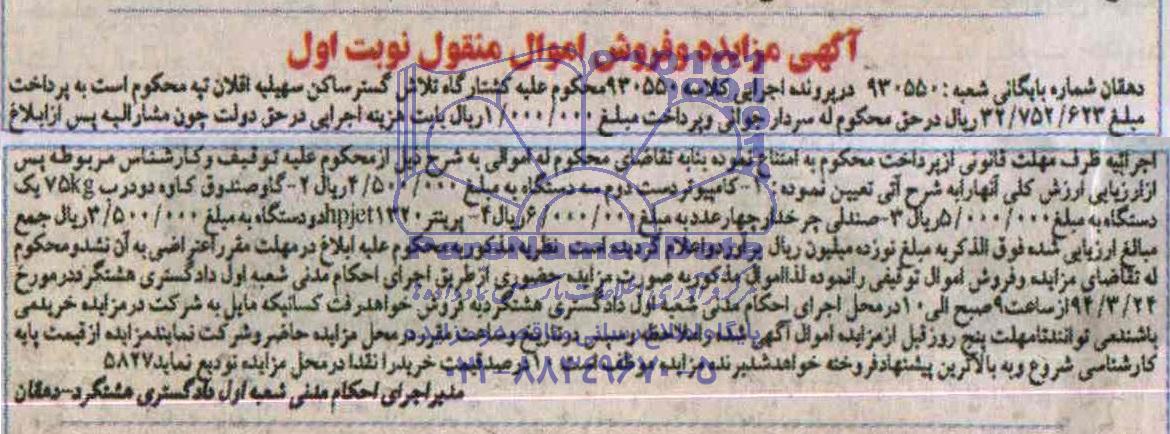 آگهی مزایده وفروش اموال منقول نوبت اول
دهقان شماره بایگانی شعبه: ۹۳۰۵۵۰ درپرونده اجرایی کلاسه ۹۳۰۵۵۰محکوم علیه کشتارگاه تلاش گستر ساکن سهیلیه اقلان تپه محکوم است به پرداخت
مبلغ ۳۲/۷۵۲/۶۲۳ ریال درحق محکوم له سردار جوانی وپرداخت مبلغ ۱/۰۰۰/۰۰۰ریال بابت هزینه اجرایی درحق دولت چون مشارالیه پس ازابلاغ
اجرائیه ظرف مهلت قانونی ازپرداخت محکوم به امتناع نموده بنابه تقاضای محکوم له اموالی به شرح ذیل ازمحکوم علیه توقیف وکارشناس مربوطه پس
ازارزیابی ارزش کلی آنهارابه شرح آتی تعیین نموده: ۱-کامپیوتر دست دوم سه دستگاه به مبلغ ۴/۵۰۰/۰۰۰ریال۲-گاوصندوق کاوه دودرب ۷۵kg یک
دستگاه به مبلغ ۵/۰۰۰/۰۰۰ریال ۳-صندلی چرخدارچهارعددبه مبلغ ۶/۰۰۰/۰۰۰ریال۴- پرینتر hpjet۱۳۲۰دودستگاه به مبلغ ۳/۵۰۰/۰۰۰ریال جمع
مبالغ ارزیابی شده فوق الذکربه مبلغ نوزده میلیون ریال برآوردواعلام گردیده است نظریه مذکوربه محکوم علیه ابلاغ درمهلت مقرراعتراضی به آن نشدومحکوم
له تقاضای مزایده وفروش اموال توقیفی رانموده لذااموال مذکوربه صورت مزایده حضوری ازطریق اجرای احکام مدنی شعبه اول دادگستری هشتگرددرمورخ
۹۴/۳/۲۴ازساعت۹صبح الی ۱۰درمحل اجرای احکام مدنی شعبه اول دادگستری هشتگردبه فروش خواهدرفت کسانیکه مایل به شرکت درمزایده خریدمی
باشندمی توانندتامهلت پنج روزقبل ازمزایده اموال آگهی شده درتاریخ وساعت مقرر درمحل مزایده حاضروشرکت نمایندمزایده ازقیمت پایه
کارشناسی شروع وبه بالاترین پیشنهادفروخته خواهدشدبرنده مزایده موظف است ۱۰درصدقیمت خریدرا نقدادرمحل مزایده تودیع نماید۵۸۲۷
مدیراجرای احکام مدنی شعبه اول دادگستری هشتگرد-دهقان
ParsNamadData
۰۲۱-۸۸۳۴۹۶۷۰-۵